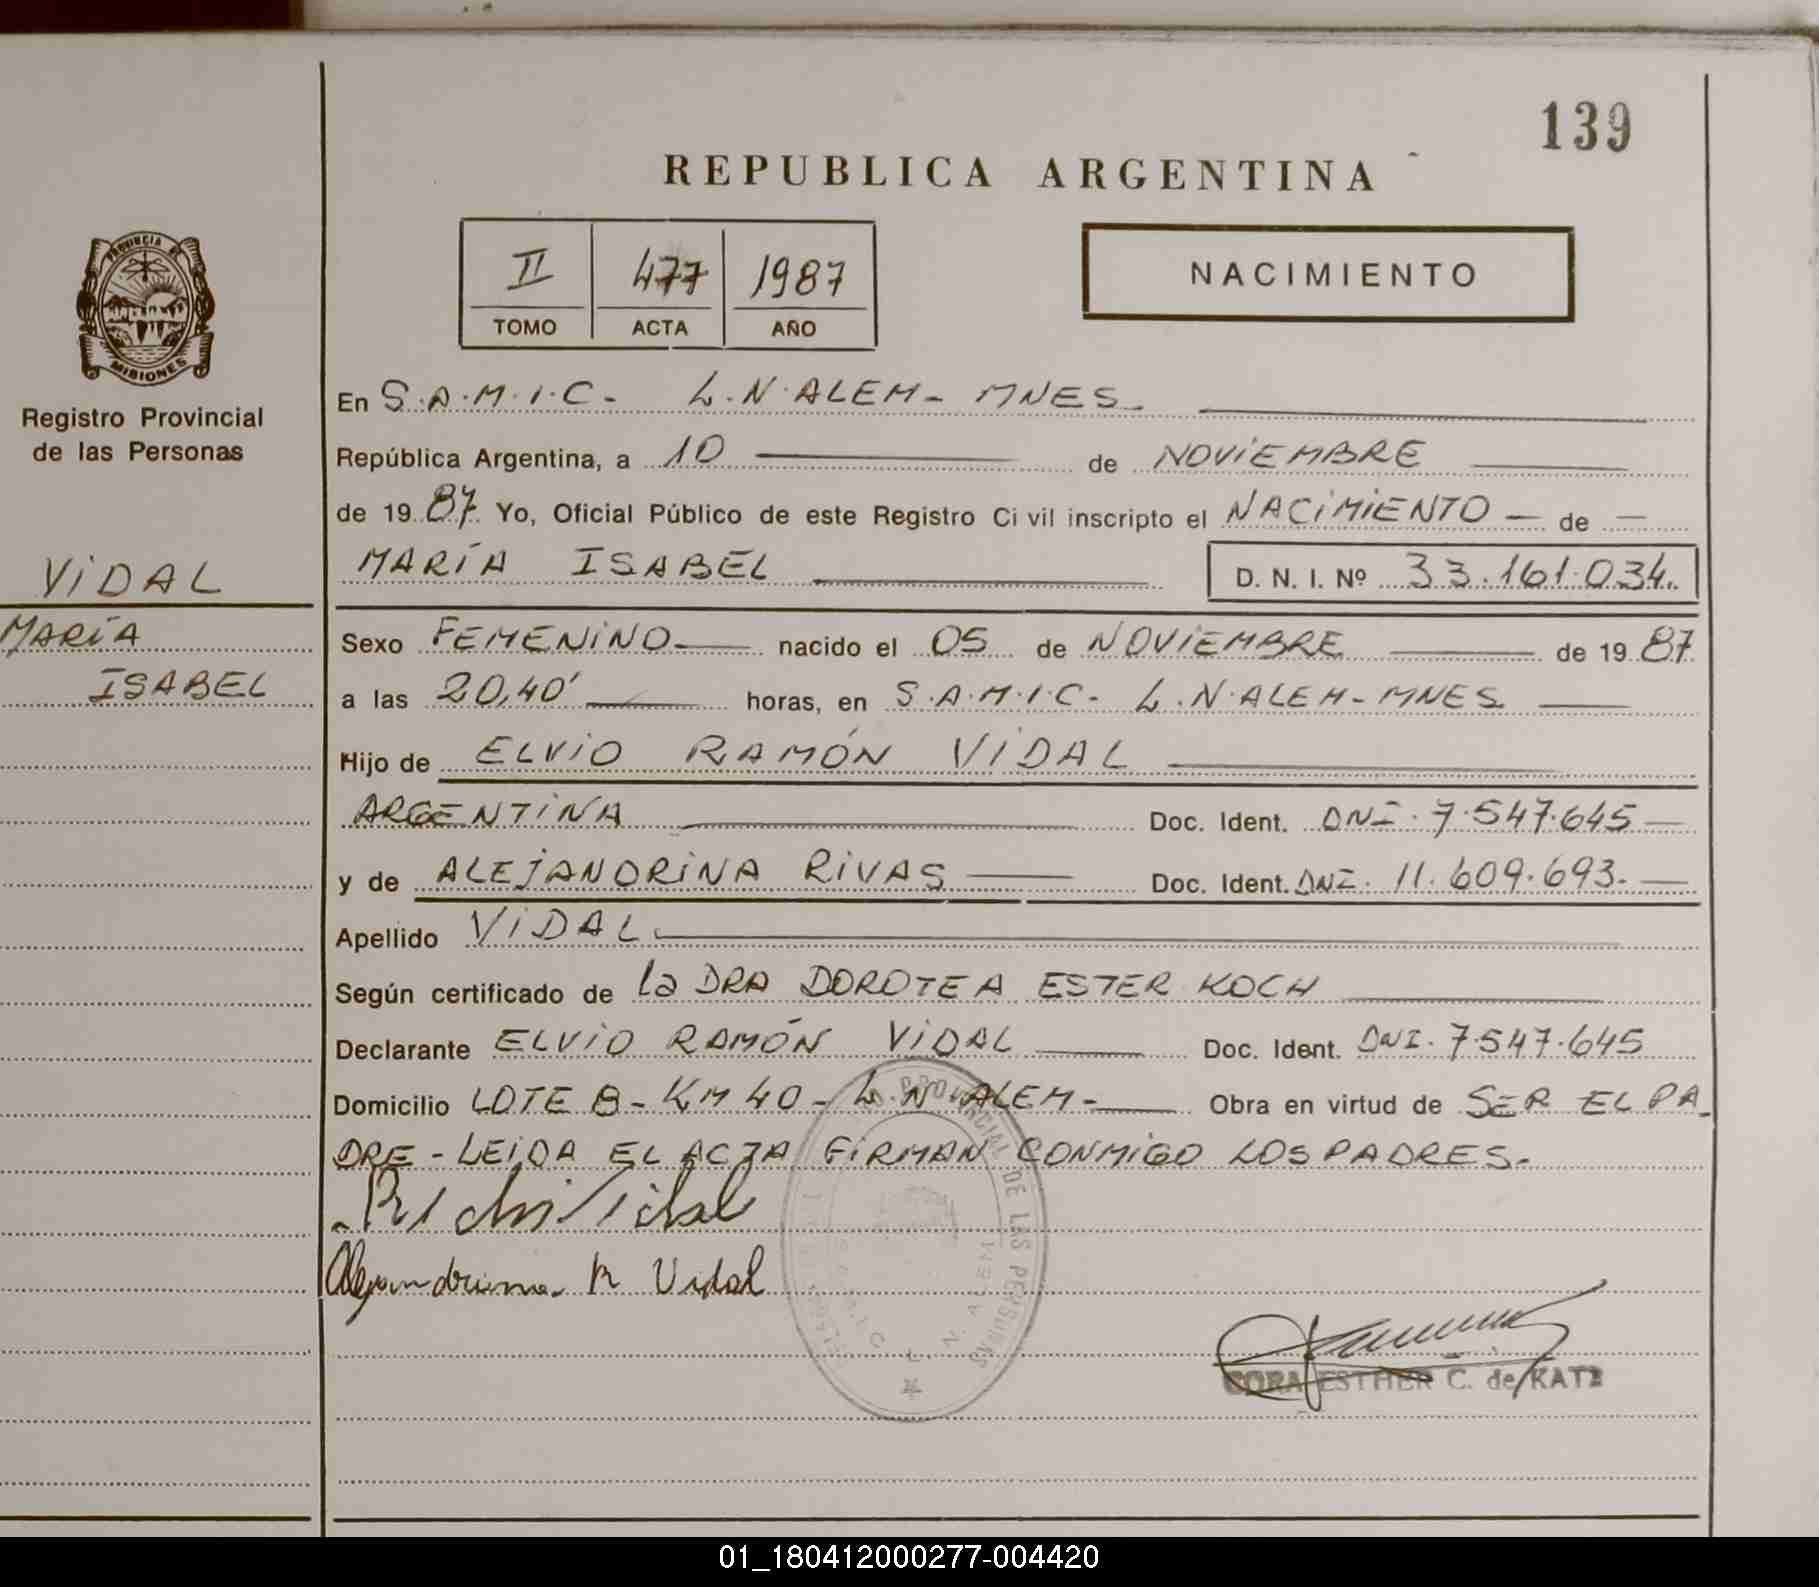 139
REPUBLICA ARGENTINA
II 477 1987
TOMO ACTA AÑO
NACIMIENTO
PROVINCIA DE
MISIONES
Registro Provincial
de las Personas
VIDAL
MARÍA
ISABEL
En S.A.M.I.C. - L.N. ALEM - MNES.
República Argentina, a 10 de NOVIEMBRE
de 1987. Yo, Oficial Público de este Registro Civil inscripto el NACIMIENTO - de -
MARÍA ISABEL D. N. I. Nº 33.161.034.
Sexo FEMENINO nacido el 05 de NOVIEMBRE de 1987
a las 20,40' horas, en S.A.M.I.C. - L.N. ALEM - MNES
Hijo de ELVIO RAMÓN VIDAL
ARGENTINA Doc. Ident. DNI. 7.547.645
y de ALEJANDRINA RIVAS Doc. Ident. DNI. 11.609.693.
Apellido VIDAL.
Según certificado de la DRA DOROTEA ESTER KOCH
Declarante ELVIO RAMÓN VIDAL Doc. Ident. DNI. 7.547.645
Domicilio LOTE 8 - KM 40 - L N ALEM - Obra en virtud de SER EL PA
DRE - LEIDA EL ACTA FIRMAN CONMIGO LOS PADRES.
Vidal
Alejandrina R Vidal
PROVINCIAL DE LAS PERSONAS
N. ALEM
CORA ESTHER C. de KATZ
01_180412000277-004420